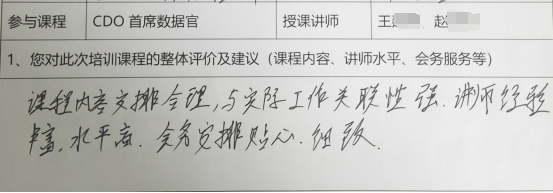 参与课程 CDO 首席数据官 授课讲师 王 赵
1、您对此次培训课程的整体评价及建议（课程内容、讲师水平、会务服务等）
课程内容安排合理，与实际工作关联性强.讲师经验
丰富，水平高.会务安排贴心.细致.